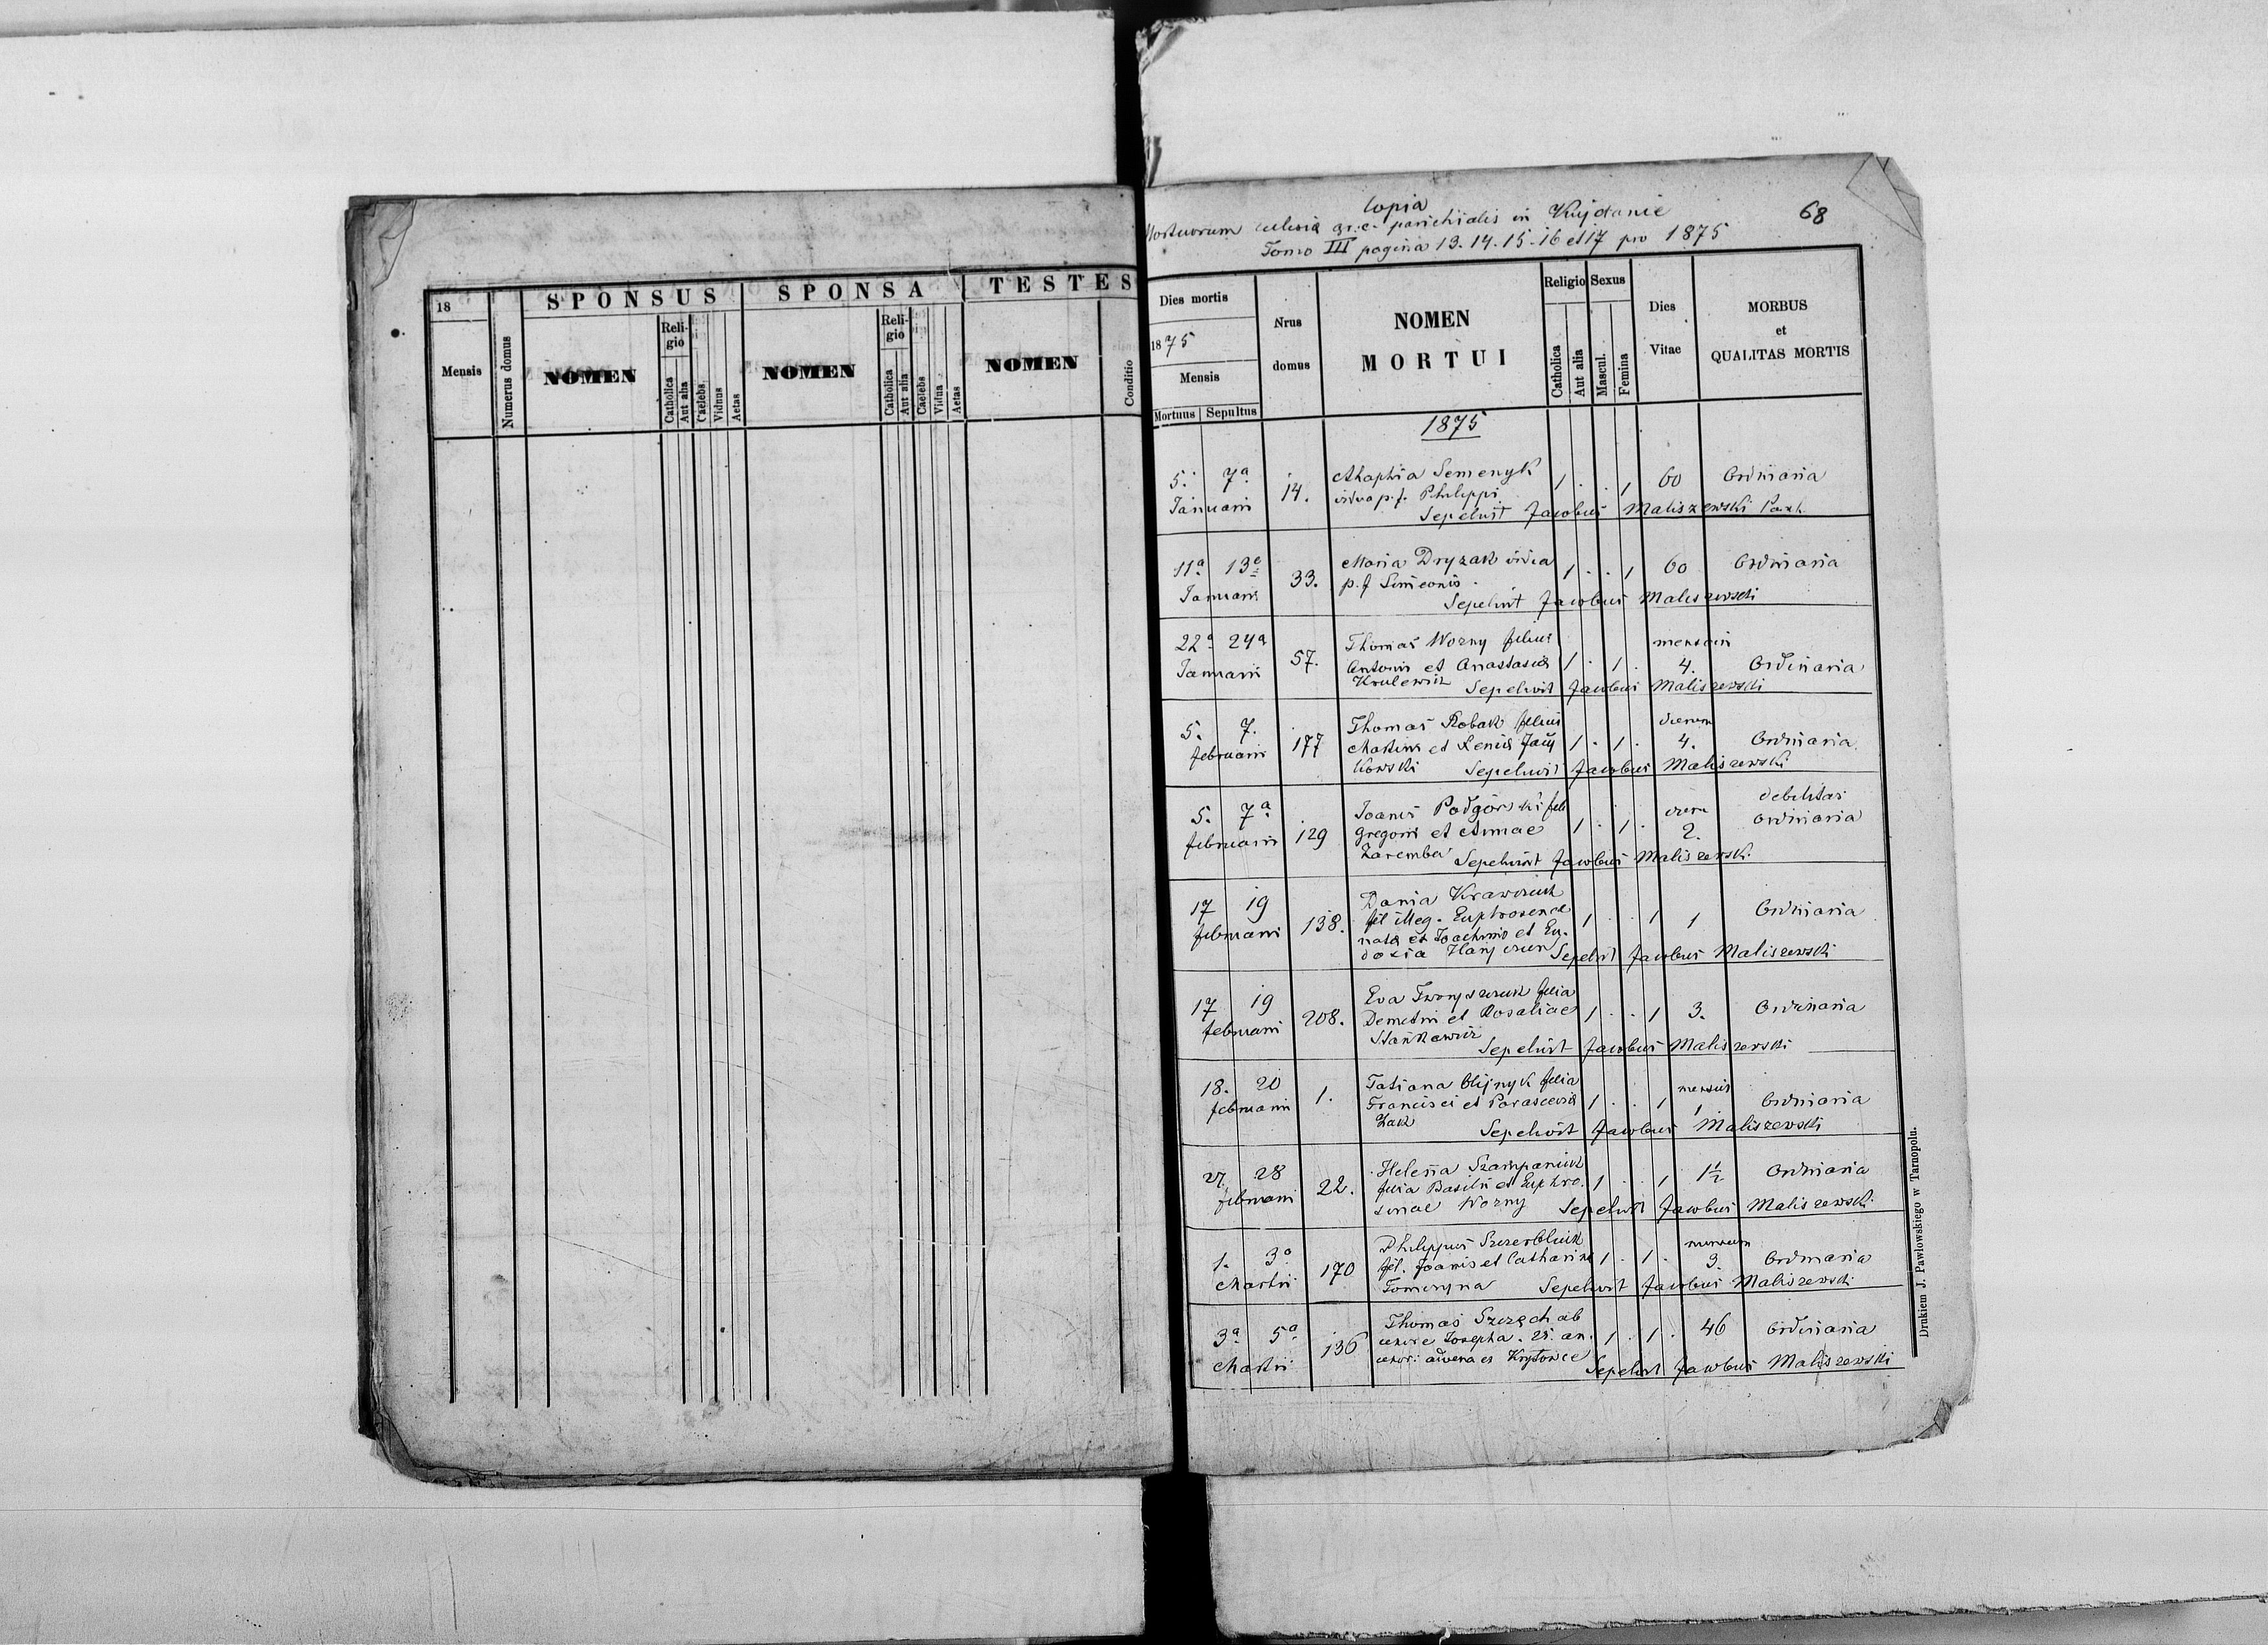 18
Mensis
Numerus domus
SPONSUS
NOMEN
Reli-
gio
Catholica
Aut alia
Caelebs
Viduus
Aetas
SPONSA
NOMEN
Reli-
gio
Catholica
Aut alia
Caelebs
Vidua
Aetas
TESTES
NOMEN
Conditio
Copia
Mortuorum eclesia gr. c. parichialis in Kujdanie
68
Tomo III pagina 13. 14. 15. 16 et 17 pro 1875
Dies mortis
1875
Mensis
Mortuus Sepultus
Nrus
domus
NOMEN
MORTUI
Religio Sexus
Catholica
Aut alia
Mascul.
Femina
Dies
Vitae
MORBUS
et
QUALITAS MORTIS
1875
5. 7a
Januarii
14.
Ahaphia Semenyk
vidua p. f. Philippi
1 . . 1 60 Ordinaria
Sepelivit Jacobus Maliszewski Parh.
11a 13a
Januarii
33.
Maria Dryzak vidua
p. f Simeonis
1 . . 1 60 Ordinaria
Sepelivit Jacobus Maliszewski
22a 24a
Januarii
57.
Thomas Wozny filius
Antonii et Anastasia
Krulewicz
1 . 1 .
mensium
4. Ordinaria
Sepelivit Jacobus Maliszewski
5. 7.
februarii
177
Thomas Robak filius
Martini et Xenia Jaiy
kowski
1 . 1 .
dierum
4. Ordinaria
Sepelivit Jacobus Maliszewski
5. 7a
februarii
129
Joanes Podgórski fili
Gregorii et Annae
Zaremba
1 . 1 .
2.
debilitas
ordinaria
Sepelivit Jacobus Maliszewski
17 19
februarii
138.
Dania Krawczuk
fil illeg. Euphrosenae
nata ex Joachimo et Eu-
doxia
1 . . 1 1 Ordinaria
Sepelivit Jacobus Maliszewski
17 19
februarii
208.
Eva Iwonyszczuk filia
Demetrii et Rosaliae
Stankewicz
1 . . 1 3. Ordinaria
Sepelivit Jacobus Maliszewski
18. 20
februarii
1.
Tatiana Olijnyk filia
Francisci et Parascevia
Zak
1 . . 1
mensis
1 Ordinaria
Sepelivit Jacobus Maliszewski
27 28
februarii
22.
Helena Szarupaniuk
filia Basilii et Euphro-
sinae Wozny
1 . . 1 1½ Ordinaria
Sepelivit Jacobus Maliszewski
1. 3a
Martii
170
Philippus Szczerbluik
fil. Joanis et Catharina
Tomeryna
1 . 1 .
mensium
3. Ordinaria
Sepelivit Jacobus Maliszewski
3a 5a
Martii
136
Thomas Szczęch ab
uxore Josepha. 21. an.
uxor: advena ex Krytowce
1 . 1 . 46 Ordinaria
Sepelivit Jacobus Maliszewski
Drukiem J. Pawłowskiego w Tarnopolu.